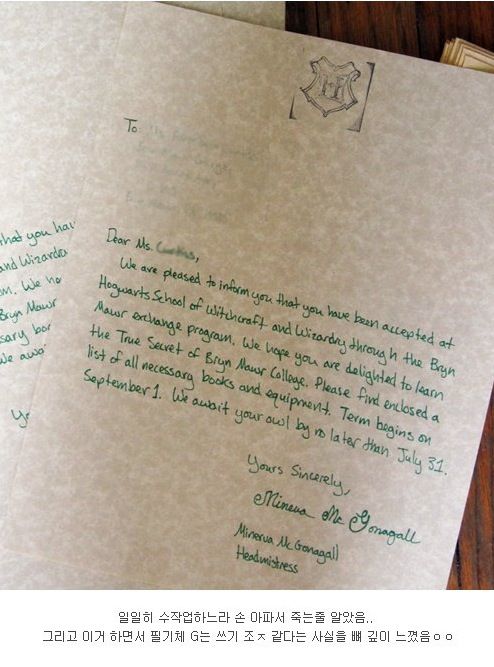 To:
Dear Ms.
We are pleased to inform you that you have been accepted at
Hogwarts School of Witchcraft and Wizardry through the Bryn
Mawr exchange program. We hope you are delighted to learn
the True Secret of Bryn Mawr College. Please find enclosed a
list of all necessary books and equipment. Term begins on
September 1. We await your owl by no later than July 31.
Yours Sincerely,
Minerva McGonagall
Minerva McGonagall
Headmistress
that you hav
and Wizardr
We ho
Bryn Mawr
sary boo
We awa
Yo
일일히 수작업하느라 손 아파서 죽는줄 알았음..
그리고 이거 하면서 필기체 G는 쓰기 조ㅈ 같다는 사실을 뼈 깊이 느꼈음ㅇㅇ